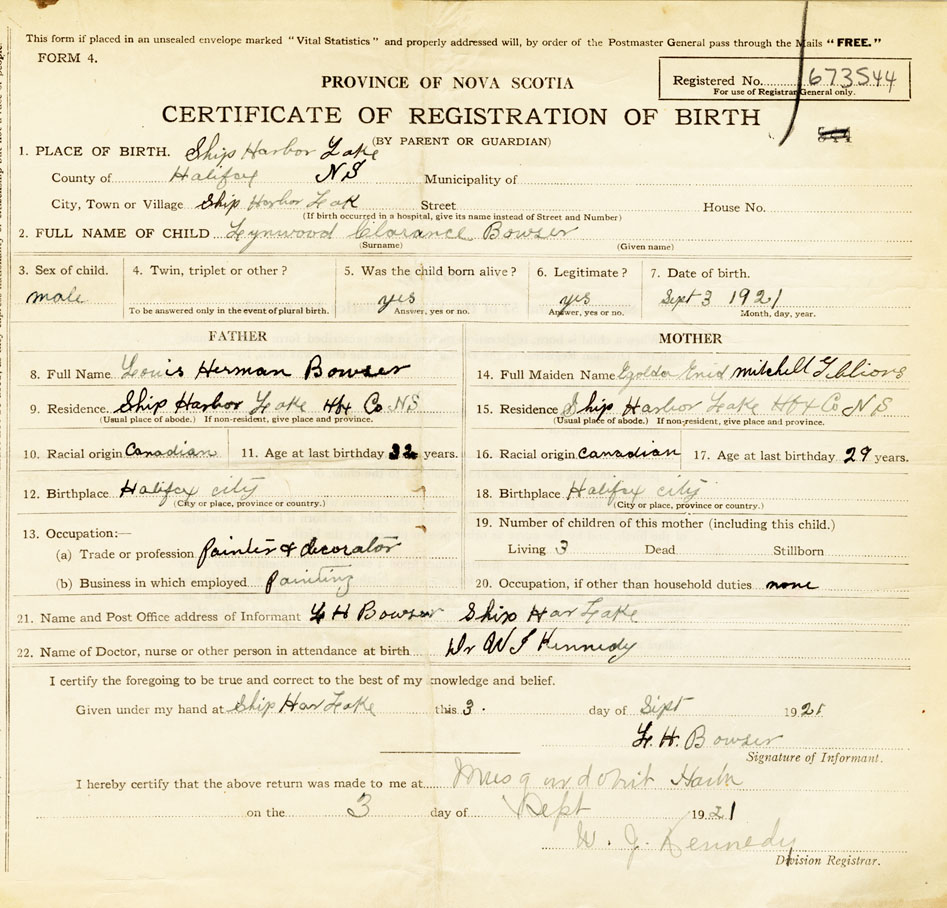 This form if placed in an unsealed envelope marked "Vital Statistics" and properly addressed will, by order of the Postmaster General pass through the Mails "FREE."
FORM 4.
Registered No. 673544
For use of Registrar General only.
PROVINCE OF NOVA SCOTIA
CERTIFICATE OF REGISTRATION OF BIRTH
544
(BY PARENT OR GUARDIAN)
1. PLACE OF BIRTH. Ship Harbor Lake
County of Halifax NS Municipality of
City, Town or Village Ship Harbor Lak Street House No.
(If birth occurred in a hospital, give its name instead of Street and Number)
2. FULL NAME OF CHILD Lynwood Clarance Bowser
(Surname) (Given name)
3. Sex of child. 4. Twin, triplet or other? 5. Was the child born alive? 6. Legitimate? 7. Date of birth.
male yes yes Sept 3 1921
To be answered only in the event of plural birth. Answer, yes or no. Answer, yes or no. Month, day, year.
FATHER MOTHER
8. Full Name Louis Herman Bowser 14. Full Maiden Name Enid mitchell
9. Residence. Ship Harbor Lake Hfx Co NS 15. Residence Ship Harbor Lake Hfx Co N S
(Usual place of abode.) If non-resident, give place and province. (Usual place of abode.) If non-resident, give place and province.
10. Racial origin Canadian 11. Age at last birthday 32 years. 16. Racial origin Canadian 17. Age at last birthday 29 years.
12. Birthplace Halifax city 18. Birthplace Halifax city
(City or place, province or country.) (City or place, province or country.)
13. Occupation:— 19. Number of children of this mother (including this child.)
(a) Trade or profession Painter & decorator Living 3 Dead Stillborn
(b) Business in which employed Painting 20. Occupation, if other than household duties none
21. Name and Post Office address of Informant L H Bowser Ship Har Lake
22. Name of Doctor, nurse or other person in attendance at birth Dr W J Kennedy
I certify the foregoing to be true and correct to the best of my knowledge and belief.
Given under my hand at Ship Har Lake this 3. day of Sept 1921
L. H. Bowser
Signature of Informant.
I hereby certify that the above return was made to me at Musquodobit Harbr
on the 3 day of Sept 1921
W. J. Kennedy
Division Registrar.